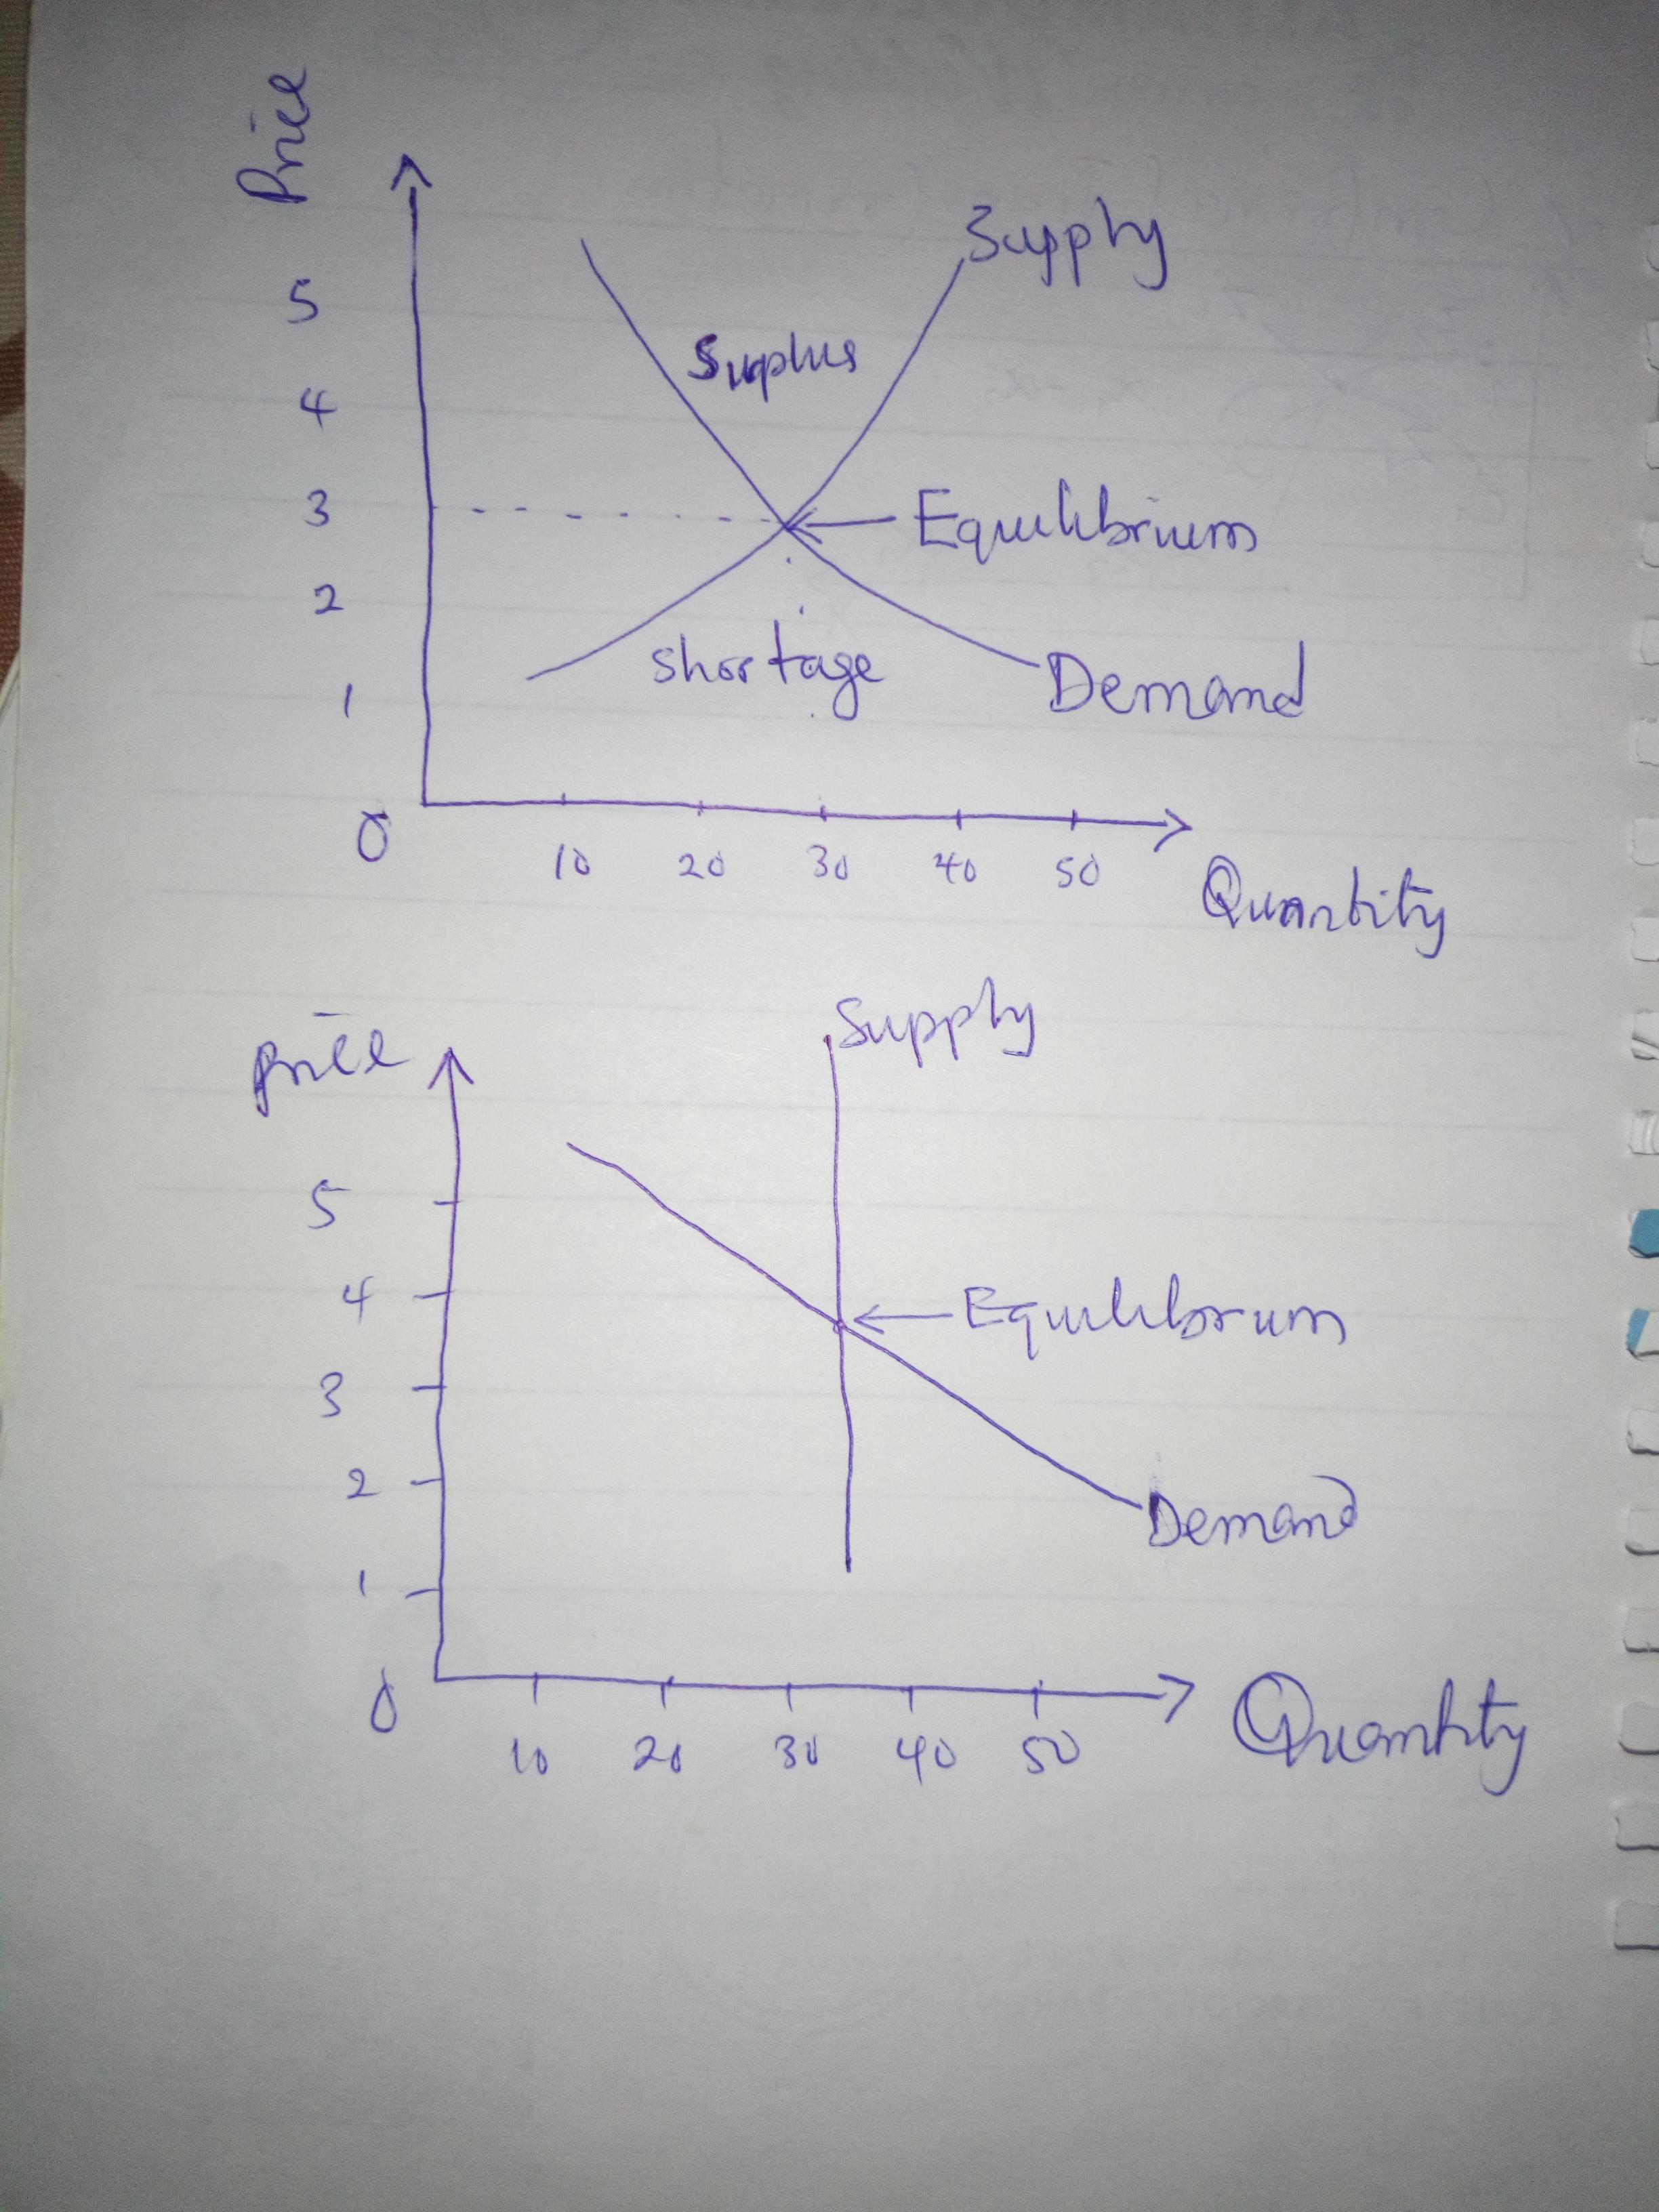 Price
Supply
5
Surplus
4
3
Equilibrium
2
shortage
Demand
1
0
10 20 30 40 50
Quantity
Supply
price
5
4
Equilibrum
3
2
Demand
1
0
10 20 30 40 50
Quantity